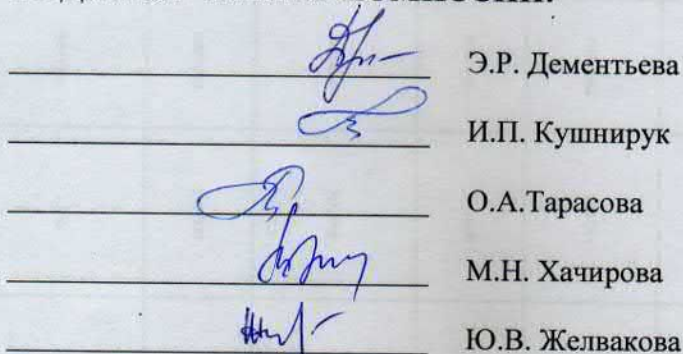 Э.Р. Дементьева
И.П. Кушнирук
О.А.Тарасова
М.Н. Хачирова
Ю.В. Желвакова